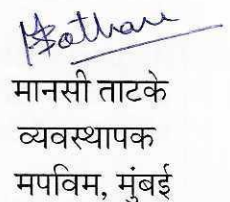 मानसी ताटके
व्यवस्थापक
मपविम, मुंबई